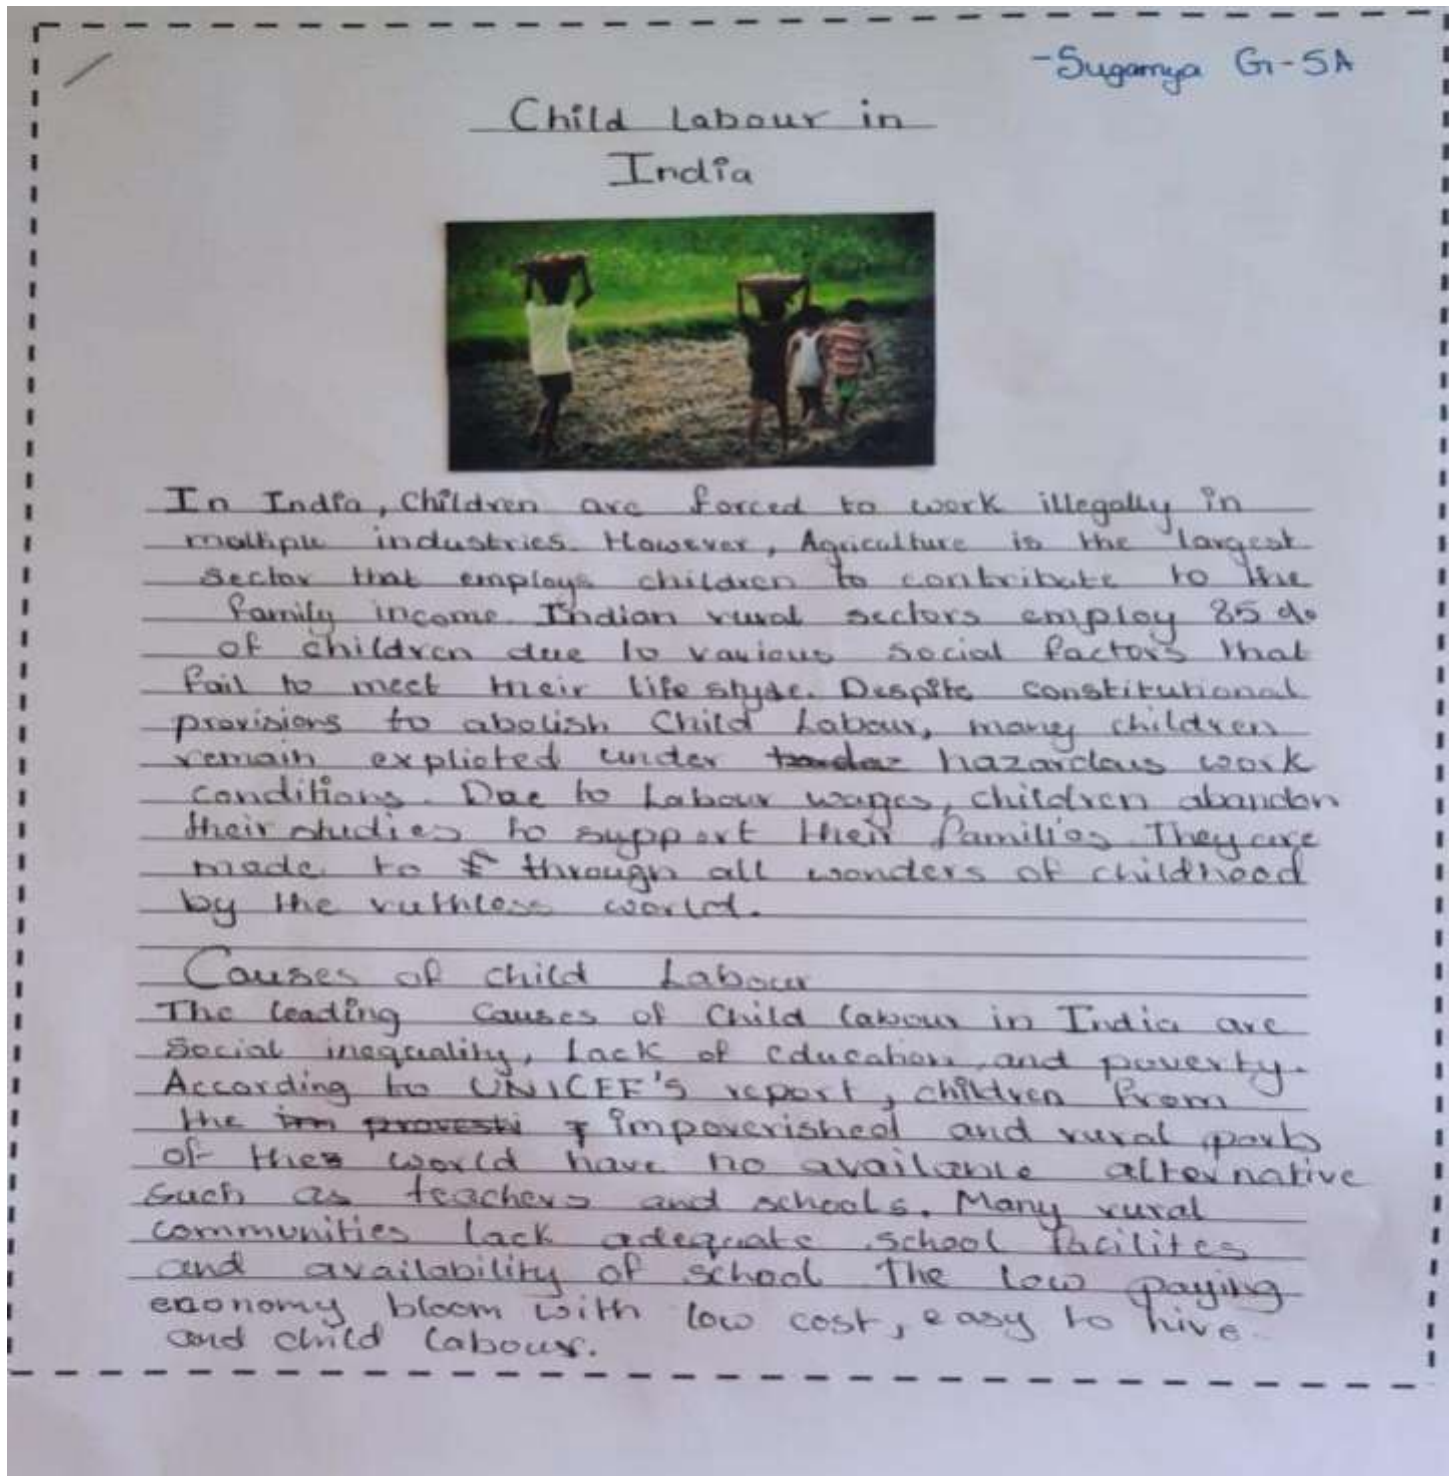 -Sugamya G-5A
Child Labour in
India
In India, Children are forced to work illegally in
multiple industries. However, Agriculture is the largest
sector that employs children to contribute to the
family income. Indian rural sectors employ 85 %
of children due to various social factors that
fail to meet their life style. Despite constitutional
provisions to abolish Child Labour, many children
remain explioted under hazardous work
conditions. Due to Labour wages, children abandon
their studies to support their families. They are
made to through all wonders of childhood
by the ruthless world.
Causes of child Labour
The leading causes of Child labour in India are
social inequality, lack of education, and poverty.
According to UNICEF's report, children from
the impoverished and rural parts
of the world have no available alternative
such as teachers and schools. Many rural
communities lack adequate school facilites
and availability of school The low paying
economy bloom with low cost, easy to hire
and child labour.